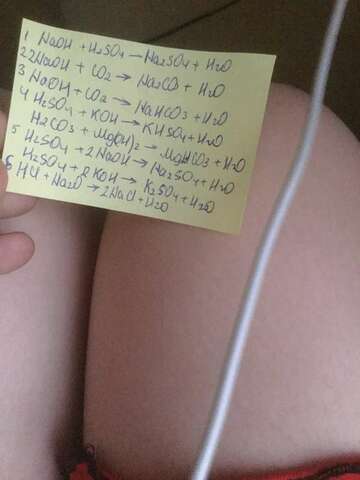 1 NaOH + H2SO4 → Na2SO4 + H2O
2 2NaOH + CO2 → Na2CO + H2O
3 NaOH + CO2 → NaHCO3 + H2O
4 H2SO4 + KOH → KHSO4 + H2O
H2CO3 + Mg(OH)2 → MgHCO3 + H2O
5 H2SO4 + 2NaOH → Na2SO4 + H2O
H2SO4 + 2KOH → K2SO4 + H2O
6 HCl + Na2O → 2NaCl + H2O